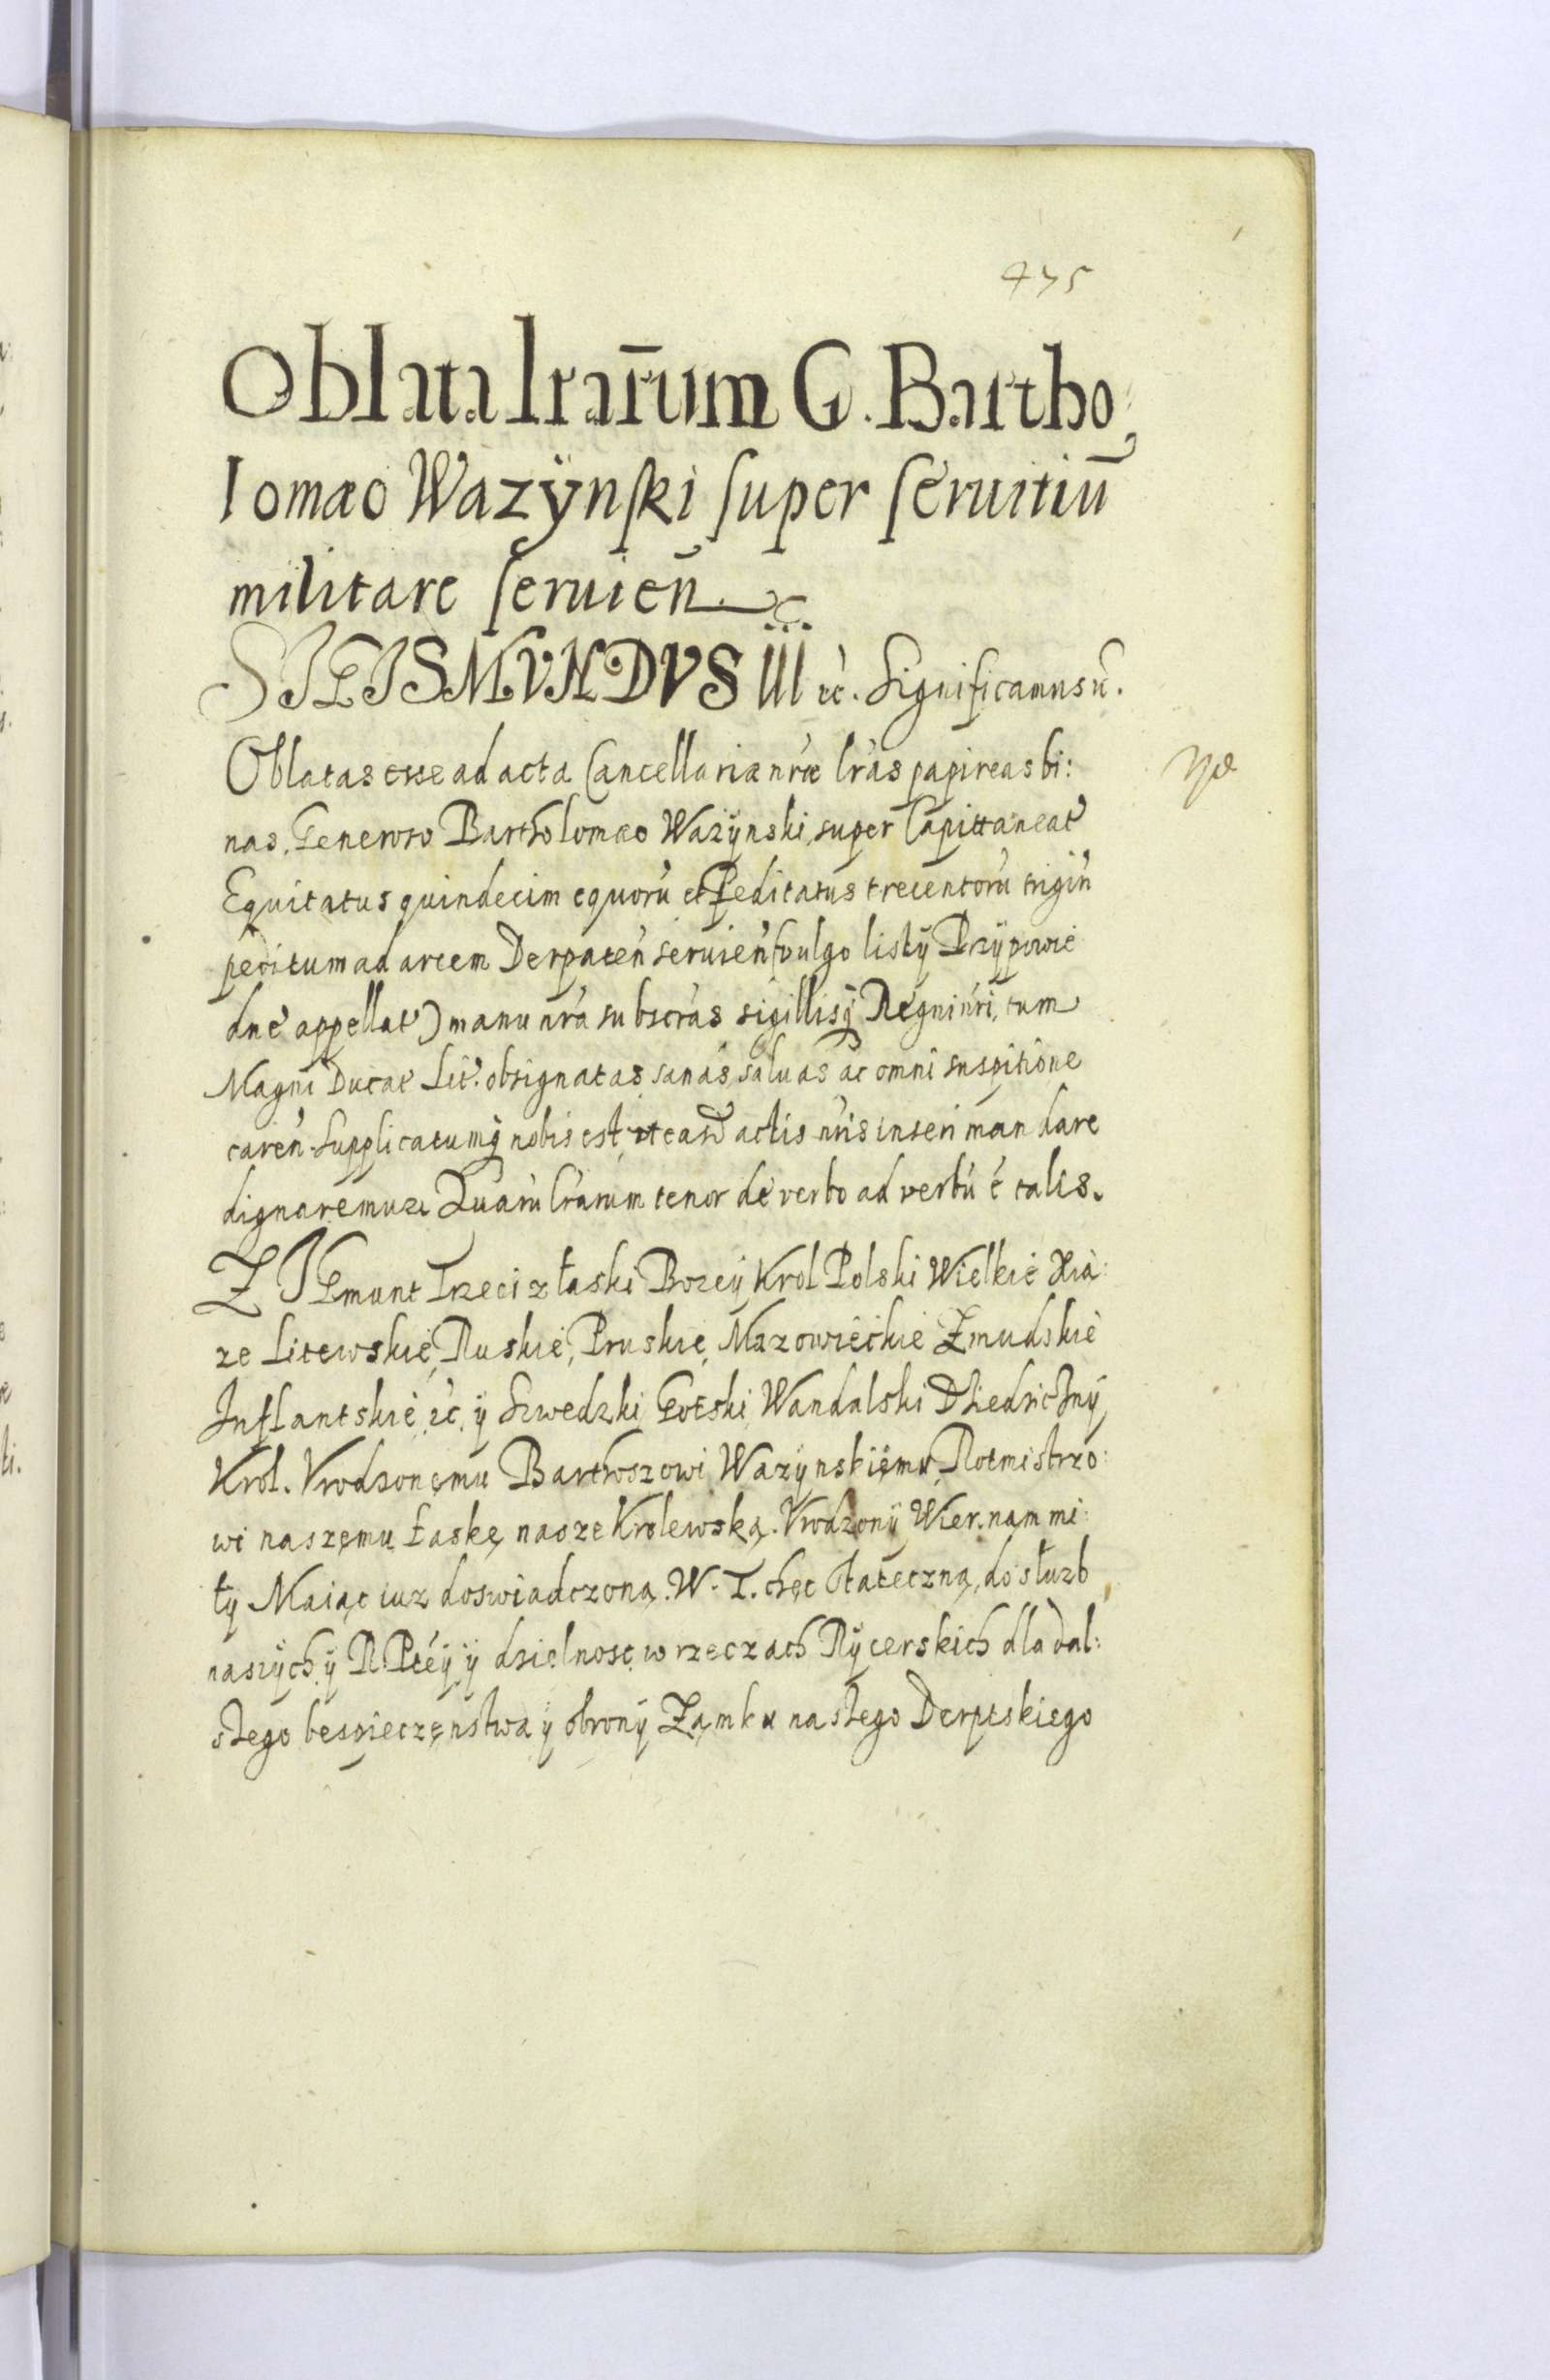 475
Oblata lrarum G. Bartho,
lomæo Wazÿnski super seruitiū
militare seruien̄
SIGISMVNDVS III ꝛc. Significamus ꝛc.
Oblatas esse ad acta Cancellariæ nr̃æ lr̃as papireas bi:
nas, Generoso Bartholomæo Wazÿnski, super Capittaneat'
Equitatus quindecim equorū et Peditatus trecentorū trigin̄
peditum ad arcem Derpaten̄ seruien̄ (vulgo listÿ Przÿpowie
dne appellat') manu nr̃a subscr̃as sigillisq̷ Regni nr̃i, tum
Magni Ducat' Lit'. obsignatas, sanas, saluas ac omni suspitione
caren̄. Supplicatumq̷ nobis est, vt easd' actis nr̃is inseri mandare
dignaremur. Quarū lr̃arum tenor de verbo ad verbū ē talis.
ZIGmunt Trzeci z łaski Bozeÿ Krol Polski Wielkie Xia:
ze Litewskie, Ruskie, Pruskie, Mazowieckie Zmudskie
Inflantskie ꝛc. ÿ Szwedzki, Gotski, Wandalski Dziedzicznÿ
Krol. Vrodzonęmu Bartłoszowi Wazÿnskięmu Rotmistrzo:
wi naszęmu Łaskę nasze Krolewską. Vrodzonÿ Wier. nam mi:
ły Maiąc iuz doswiadczoną. W. T. chęc stateczną, do słuzb
naszÿch ÿ R Ptéÿ ÿ dzielnosc w rzeczach Rÿcerskich dla dal:
szego bespieczęnstwa ÿ obronÿ Zamku naszego Derptskiego